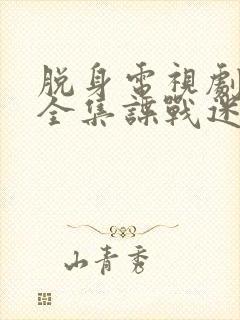 脱身電視劇
全集諜戰迷
山青秀